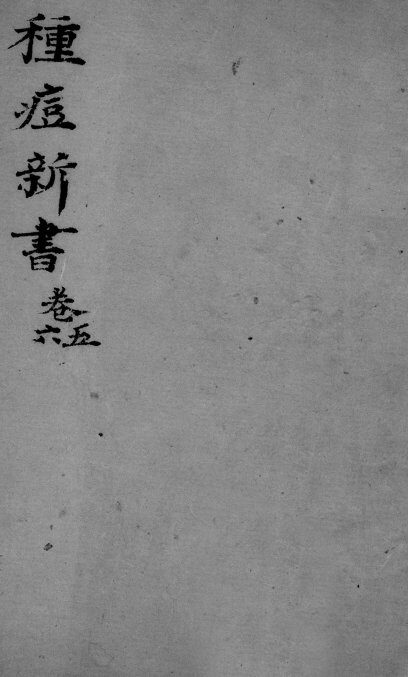 種痘新書
卷五六